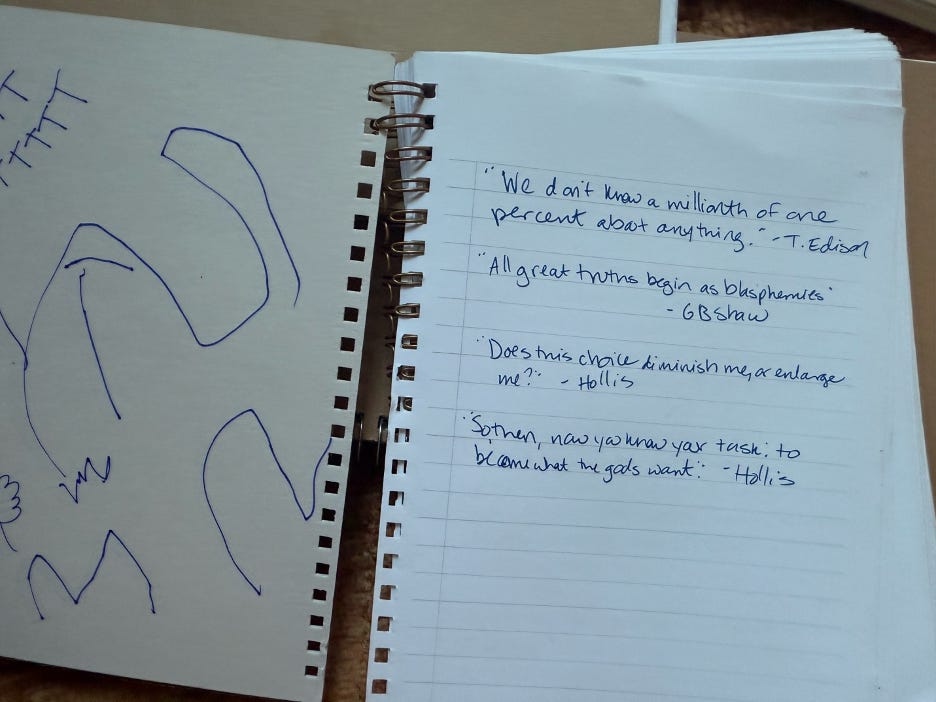 T T
T T T T
"We don't know a millionth of one
percent about anything." - T. Edison
"All great truths begin as blasphemies"
- GB Shaw
"Does this choice diminish me, or enlarge
me?" - Hollis
"So then, now you know your task: to
become what the gods want." - Hollis